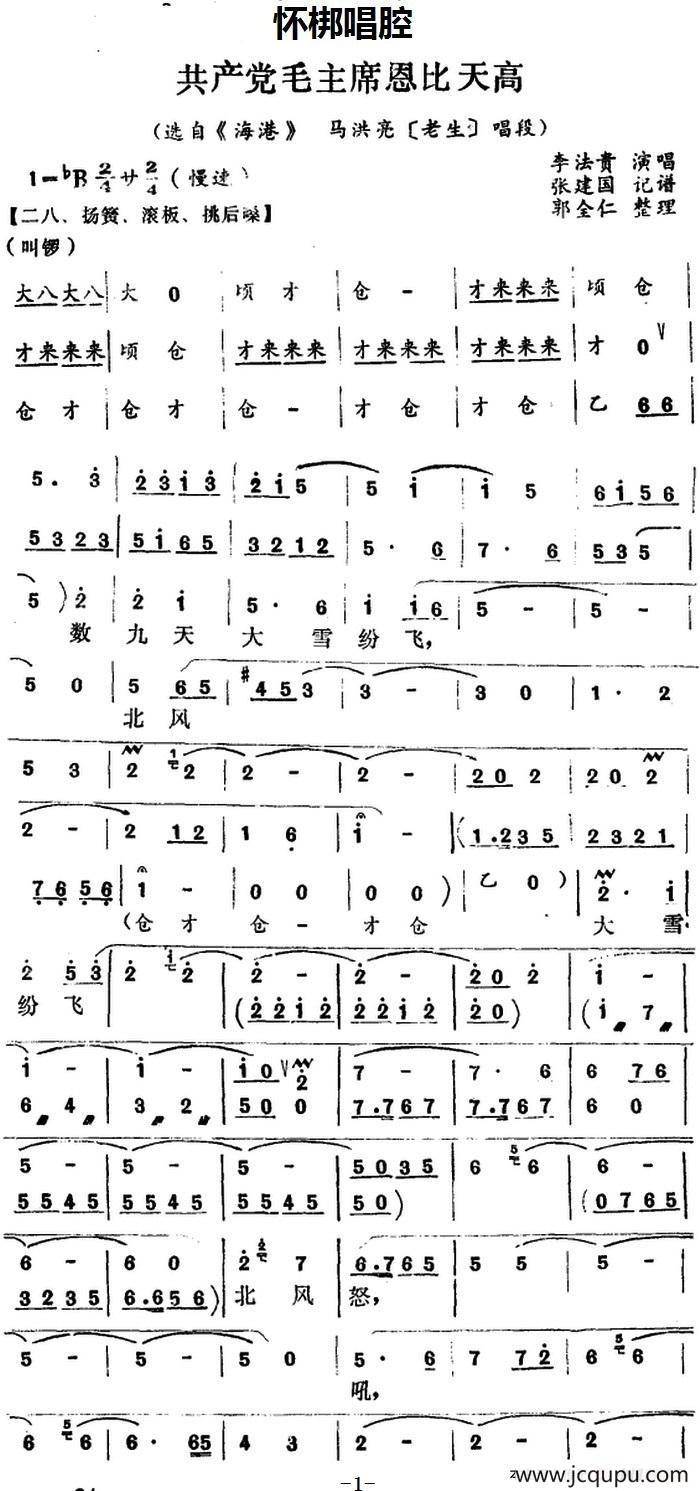 怀梆唱腔
共产党毛主席恩比天高
(选自《海港》 马洪亮〔老生〕唱段)
1=♭B 2/4 サ 2/4 (慢速)
李法贵 演唱
张建国 记谱
郭全仁 整理
【二八、扬簧、滚板、挑后嗓】
(叫锣)
大八大八| 大 0 | 顷 才 | 仓 - | 才来来来 | 顷 仓 |
才来来来| 顷 仓 | 才来来来 | 才来来来 | 才来来来 | 才 0 ∨|
仓 才 | 仓 才 | 仓 - | 才 仓 | 才 仓 | 乙 6 6 |
5. 3 | 2 3 1 3 | 2 1 5 | 5 1 | 1 5 | 6 1 5 6 |
5 3 2 3 | 5 1 6 5 | 3 2 1 2 | 5 · 6 | 7 · 6 | 5 3 5 |
5 ) 2 | 2 1 | 5 · 6 | 1 1 6 | 5 - | 5 - |
数 九 天 大 雪 纷 飞,
5 0 | 5 6 5 | #4 5 3 | 3 - | 3 0 | 1 · 2 |
北 风
5 3 | 2 2 | 2 - | 2 - | 2 0 2 | 2 0 2 |
2 - | 2 1 2 | 1 6 | 1 - |( 1.2 3 5 | 2 3 2 1 |
7 6 5 6 | 1 - | 0 0 | 0 0 ) | 乙 0 ) | 2 · 1 |
(仓 才 仓 - 才 仓 大 雪
2 5 3 | 2 2 | 2 - | 2 - | 2 0 2 | 1 - |
纷 飞 (2 2 1 2 | 2 2 1 2 | 2 0 ) | ( 1 7 |
1 - | 1 - | 1 0 ∨ 2 | 7 - | 7 · 6 | 6 7 6 |
6 4 | 3 2 | 5 0 0 | 7.7 6 7 | 7.7 6 7 | 6 0 |
5 - | 5 - | 5 - | 5 0 3 5 | 6 6 | 6 - |
5 5 4 5 | 5 5 4 5 | 5 5 4 5 | 5 0 ) | ( 0 7 6 5 |
6 - | 6 0 | 2 7 | 6.7 6 5 | 5 5 | 5 - |
3 2 3 5 | 6.6 5 6 ) | 北 风 怒,
5 - | 5 - | 5 0 | 5 · 6 | 7 7 2 | 6 6 |
吼,
6 6 | 6 · 6 5 | 4 3 | 2 - | 2 - | 2 - |
-1-
www.jcqupu.com